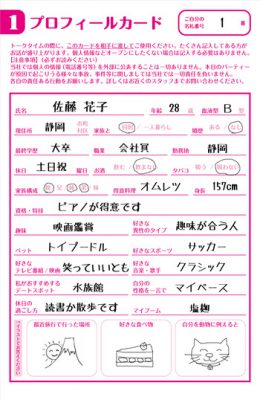 1 プロフィールカード ご自分の名札番号 1 番
トークタイムの際に、このカードを相手に渡してご使用ください。たくさん記入してある方が
お話が盛り上がります。個人情報などオープンにしたくない場合は記入する必要はありません。
【注意事項】(必ずお読みください)
当社では個人の情報(電話番号等)を外部に公表することは一切ありません。本日のパーティー
が原因で起こりうる様々な事故、事件等に関しましては当社では一切責任を負いません。
各自の責任ある行動をお願いします。詳しくはお近くのスタッフまでお問い合わせください。
氏名 佐藤 花子 年齢 28 歳 血液型 B 型
現住所 静岡 家族と 同居 一人暮らし 婚歴 ある なし
最終学歴 大卒 職業 会社員 勤務地 静岡
休日 土日祝 お酒 飲む 飲まない タバコ 吸う 吸わない
家族構成 得意料理 オムレツ 身長 157cm
資格・特技 ピアノが得意です
趣味 映画鑑賞 好きな異性のタイプ 趣味が合う人
ペット トイプードル 好きなスポーツ サッカー
好きなテレビ番組/映画 笑っていいとも 好きな音楽・歌手 クラシック
私がおすすめするデートスポット 水族館 自分の性格を一言で マイペース
休日の過ごし方 読書か散歩です マイブーム 塩麹
イラストでお答えください
最近旅行で行った場所 好きな食べ物 自分を動物に例えると